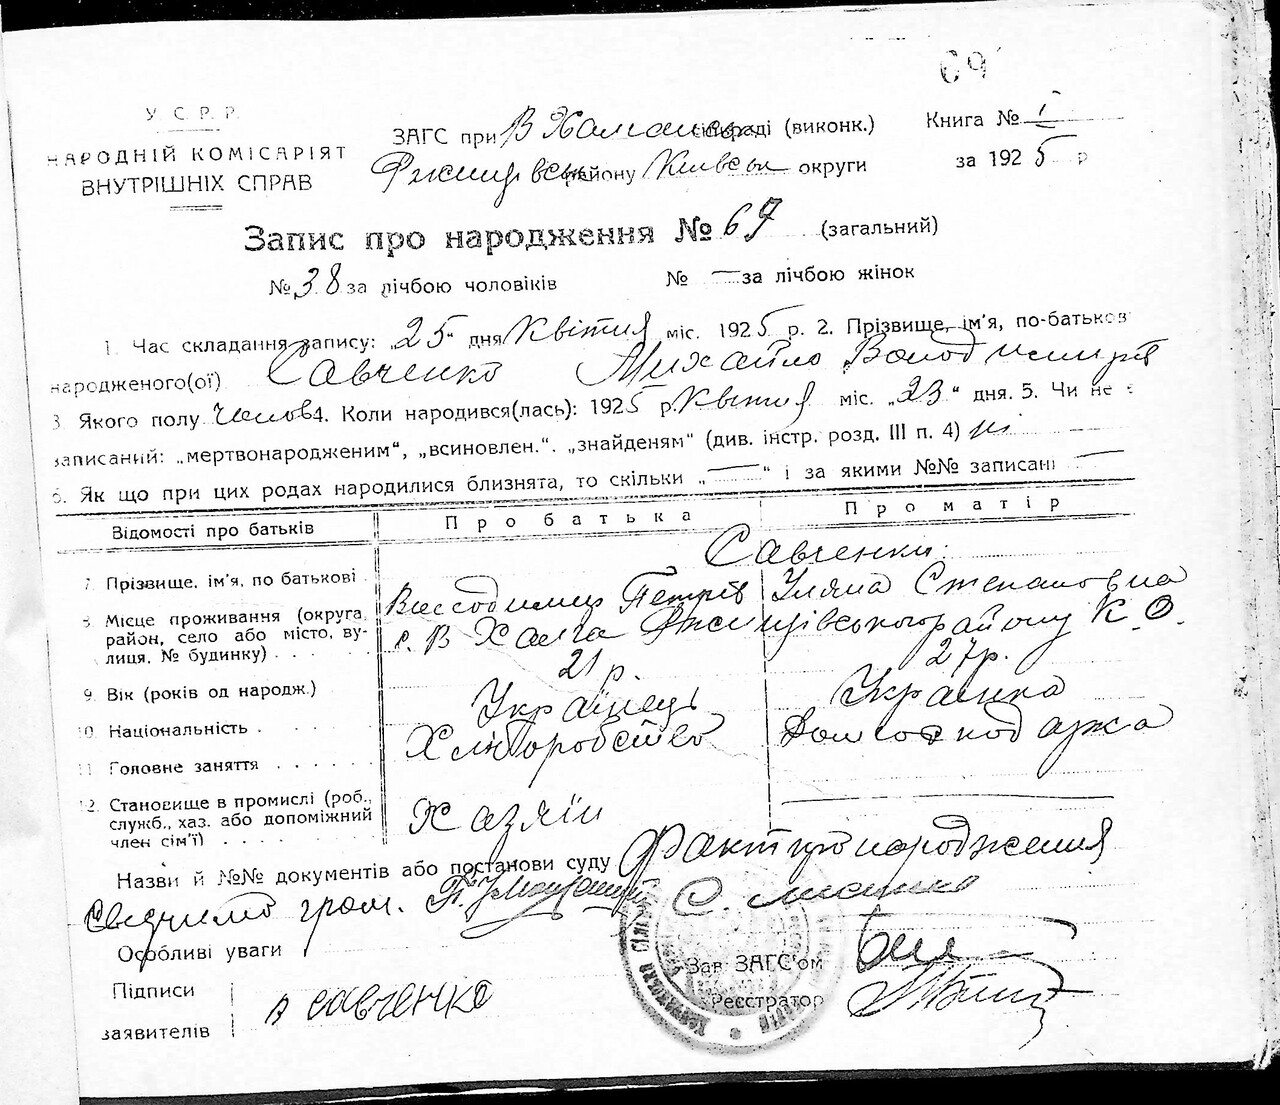 69
У С. Р. Р.
НАРОДНІЙ КОМІСАРІЯТ
ВНУТРІШНІХ СПРАВ
ЗАГС при В Халчанськ сільраді (виконк.)
Ржищівськ району Київськ округи
Книга № І
за 1925 р
Запис про народження № 69 (загальний)
№ 38 за лічбою чоловіків № — за лічбою жінок
1. Час складання запису: „25“ дня Квітня міс. 1925 р. 2. Прізвище, ім'я, по-батьков
народженого(ої) Савченко Михайло Володимирів
3 Якого полу Чолов 4. Коли народився(лась): 1925 р. Квітня міс. „23“ дня. 5. Чи не є
записаний: „мертвонародженим“, „всиновлен.“. „знайденям“ (див. інстр. розд. III п. 4) ні
6. Як що при цих родах народилися близнята, то скільки „—“ і за якими №№ записані —
Відомості про батьків Про батька Про матір
Савченки
7. Прізвище, ім'я, по батькові Володимир Петрів Уляна Степановна
8. Місце проживання (округа, район, село або місто, вулиця, № будинку) с. В Халча Ржищівського району К. О.
9. Вік (років од народж.) 21 р. 27 р.
10. Національність Українець Українка
11 Головне заняття Хліборобство Домогосподарка
12. Становище в промислі (роб., служб., хаз. або допоміжний член сім'ї) Хазяїн —
Назви й №№ документів або постанови суду Факт про народження
свідчимо гром. С. Лисенко
Особливі уваги
Підписи
заявителів В Савченко
Зав ЗАГС'ом
Реєстратор